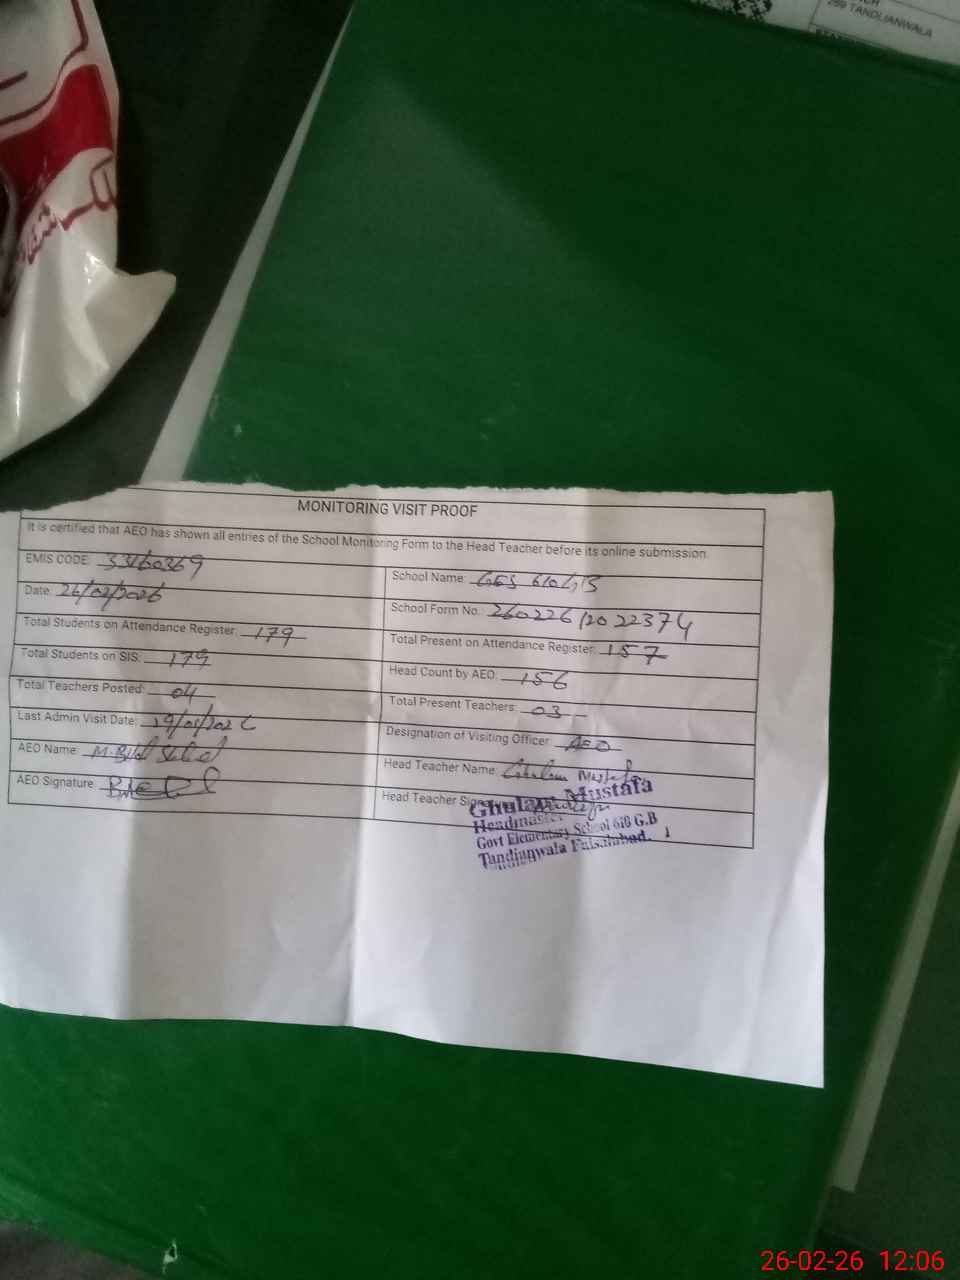 259 TANDLIANWALA
MONITORING VISIT PROOF
It is certified that AEO has shown all entries of the School Monitoring Form to the Head Teacher before its online submission.
EMIS CODE: 33160369
School Name: GES 610 GB
Date: 26/02/2026
School Form No. 260226 12022374
Total Students on Attendance Register: 179
Total Present on Attendance Register: 157
Total Students on SIS: 179
Head Count by AEO: 156
Total Teachers Posted: 04
Total Present Teachers: 03
Last Admin Visit Date: 19/01/2026
Designation of Visiting Officer AEO
AEO Name: M. Bilal
Head Teacher Name: Ghulam Mustafa
AEO Signature:
Head Teacher Signature
Ghulam Mustafa
Headmaster
Govt Elementary School 610 G.B
Tandlianwala Faisalabad.
26-02-26 12:06